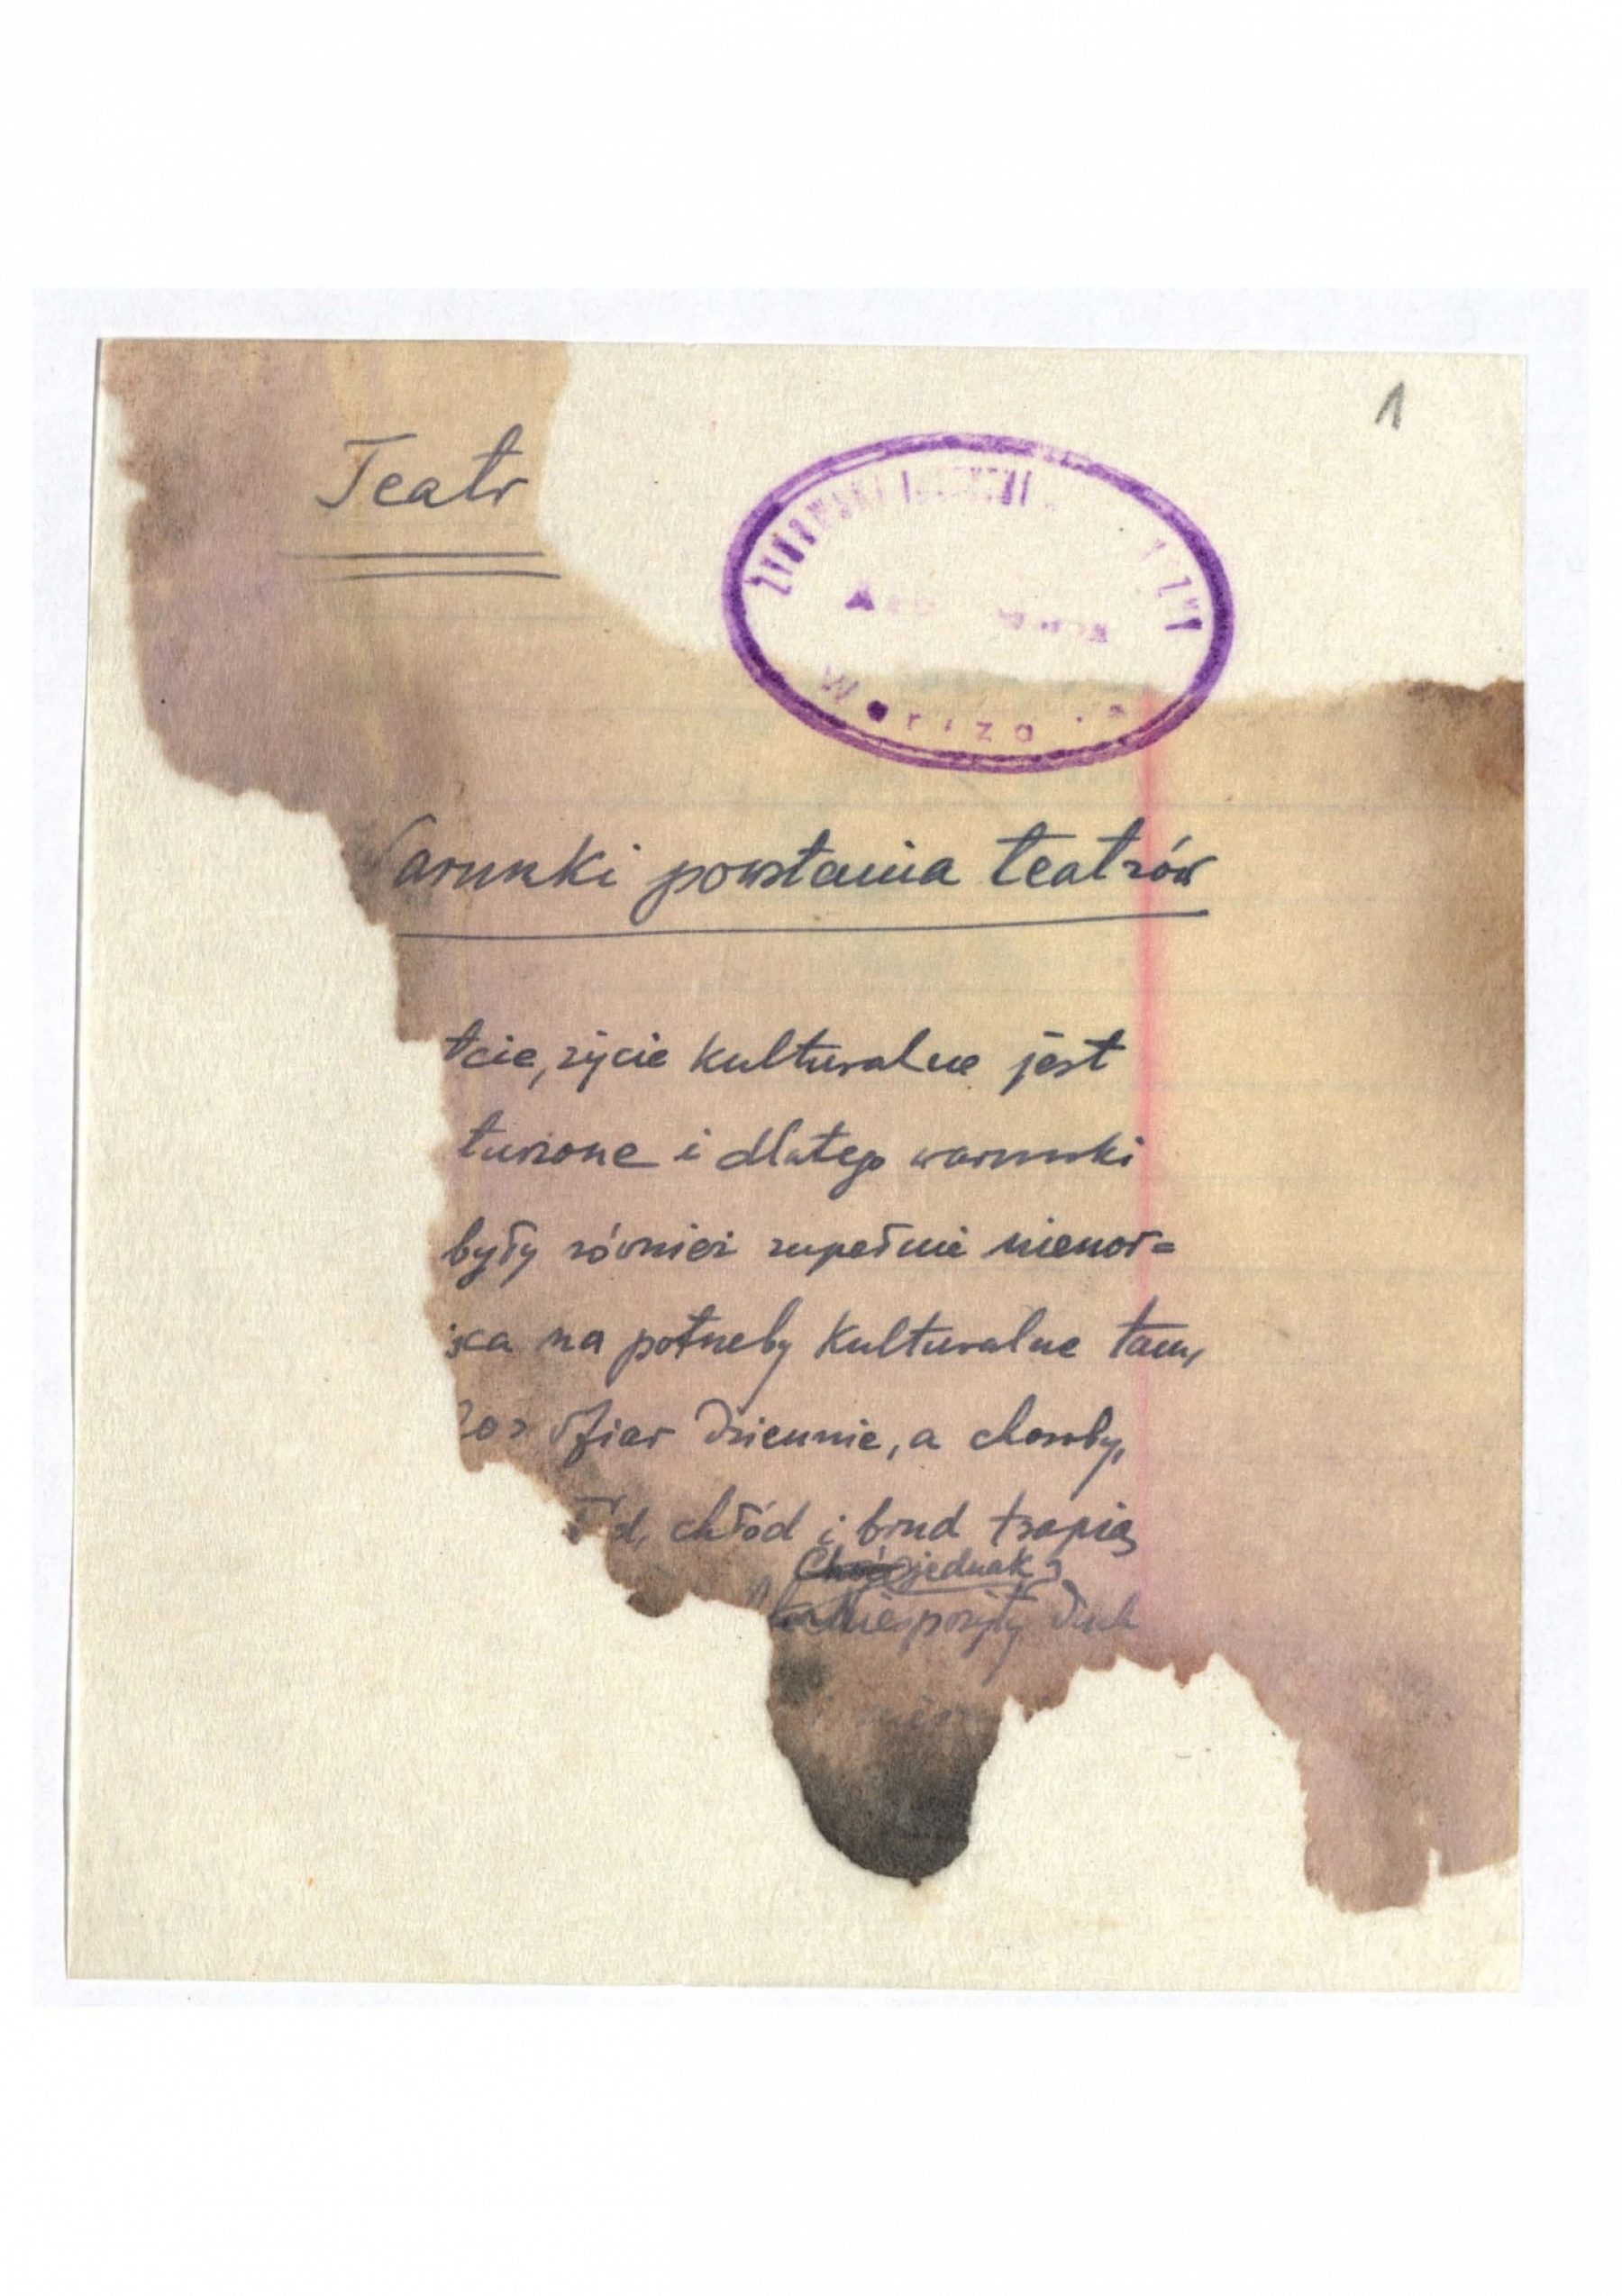 1
Teatr
arunki powstania teatrów
tcie, życie kulturalne jest
turzone i dlatego warunki
były również zupełnie nienor=
na potrzeby kulturalne tam,
ofiar dziennie, a choroby,
chłód i brud trapią
jednak
niespożyty duch